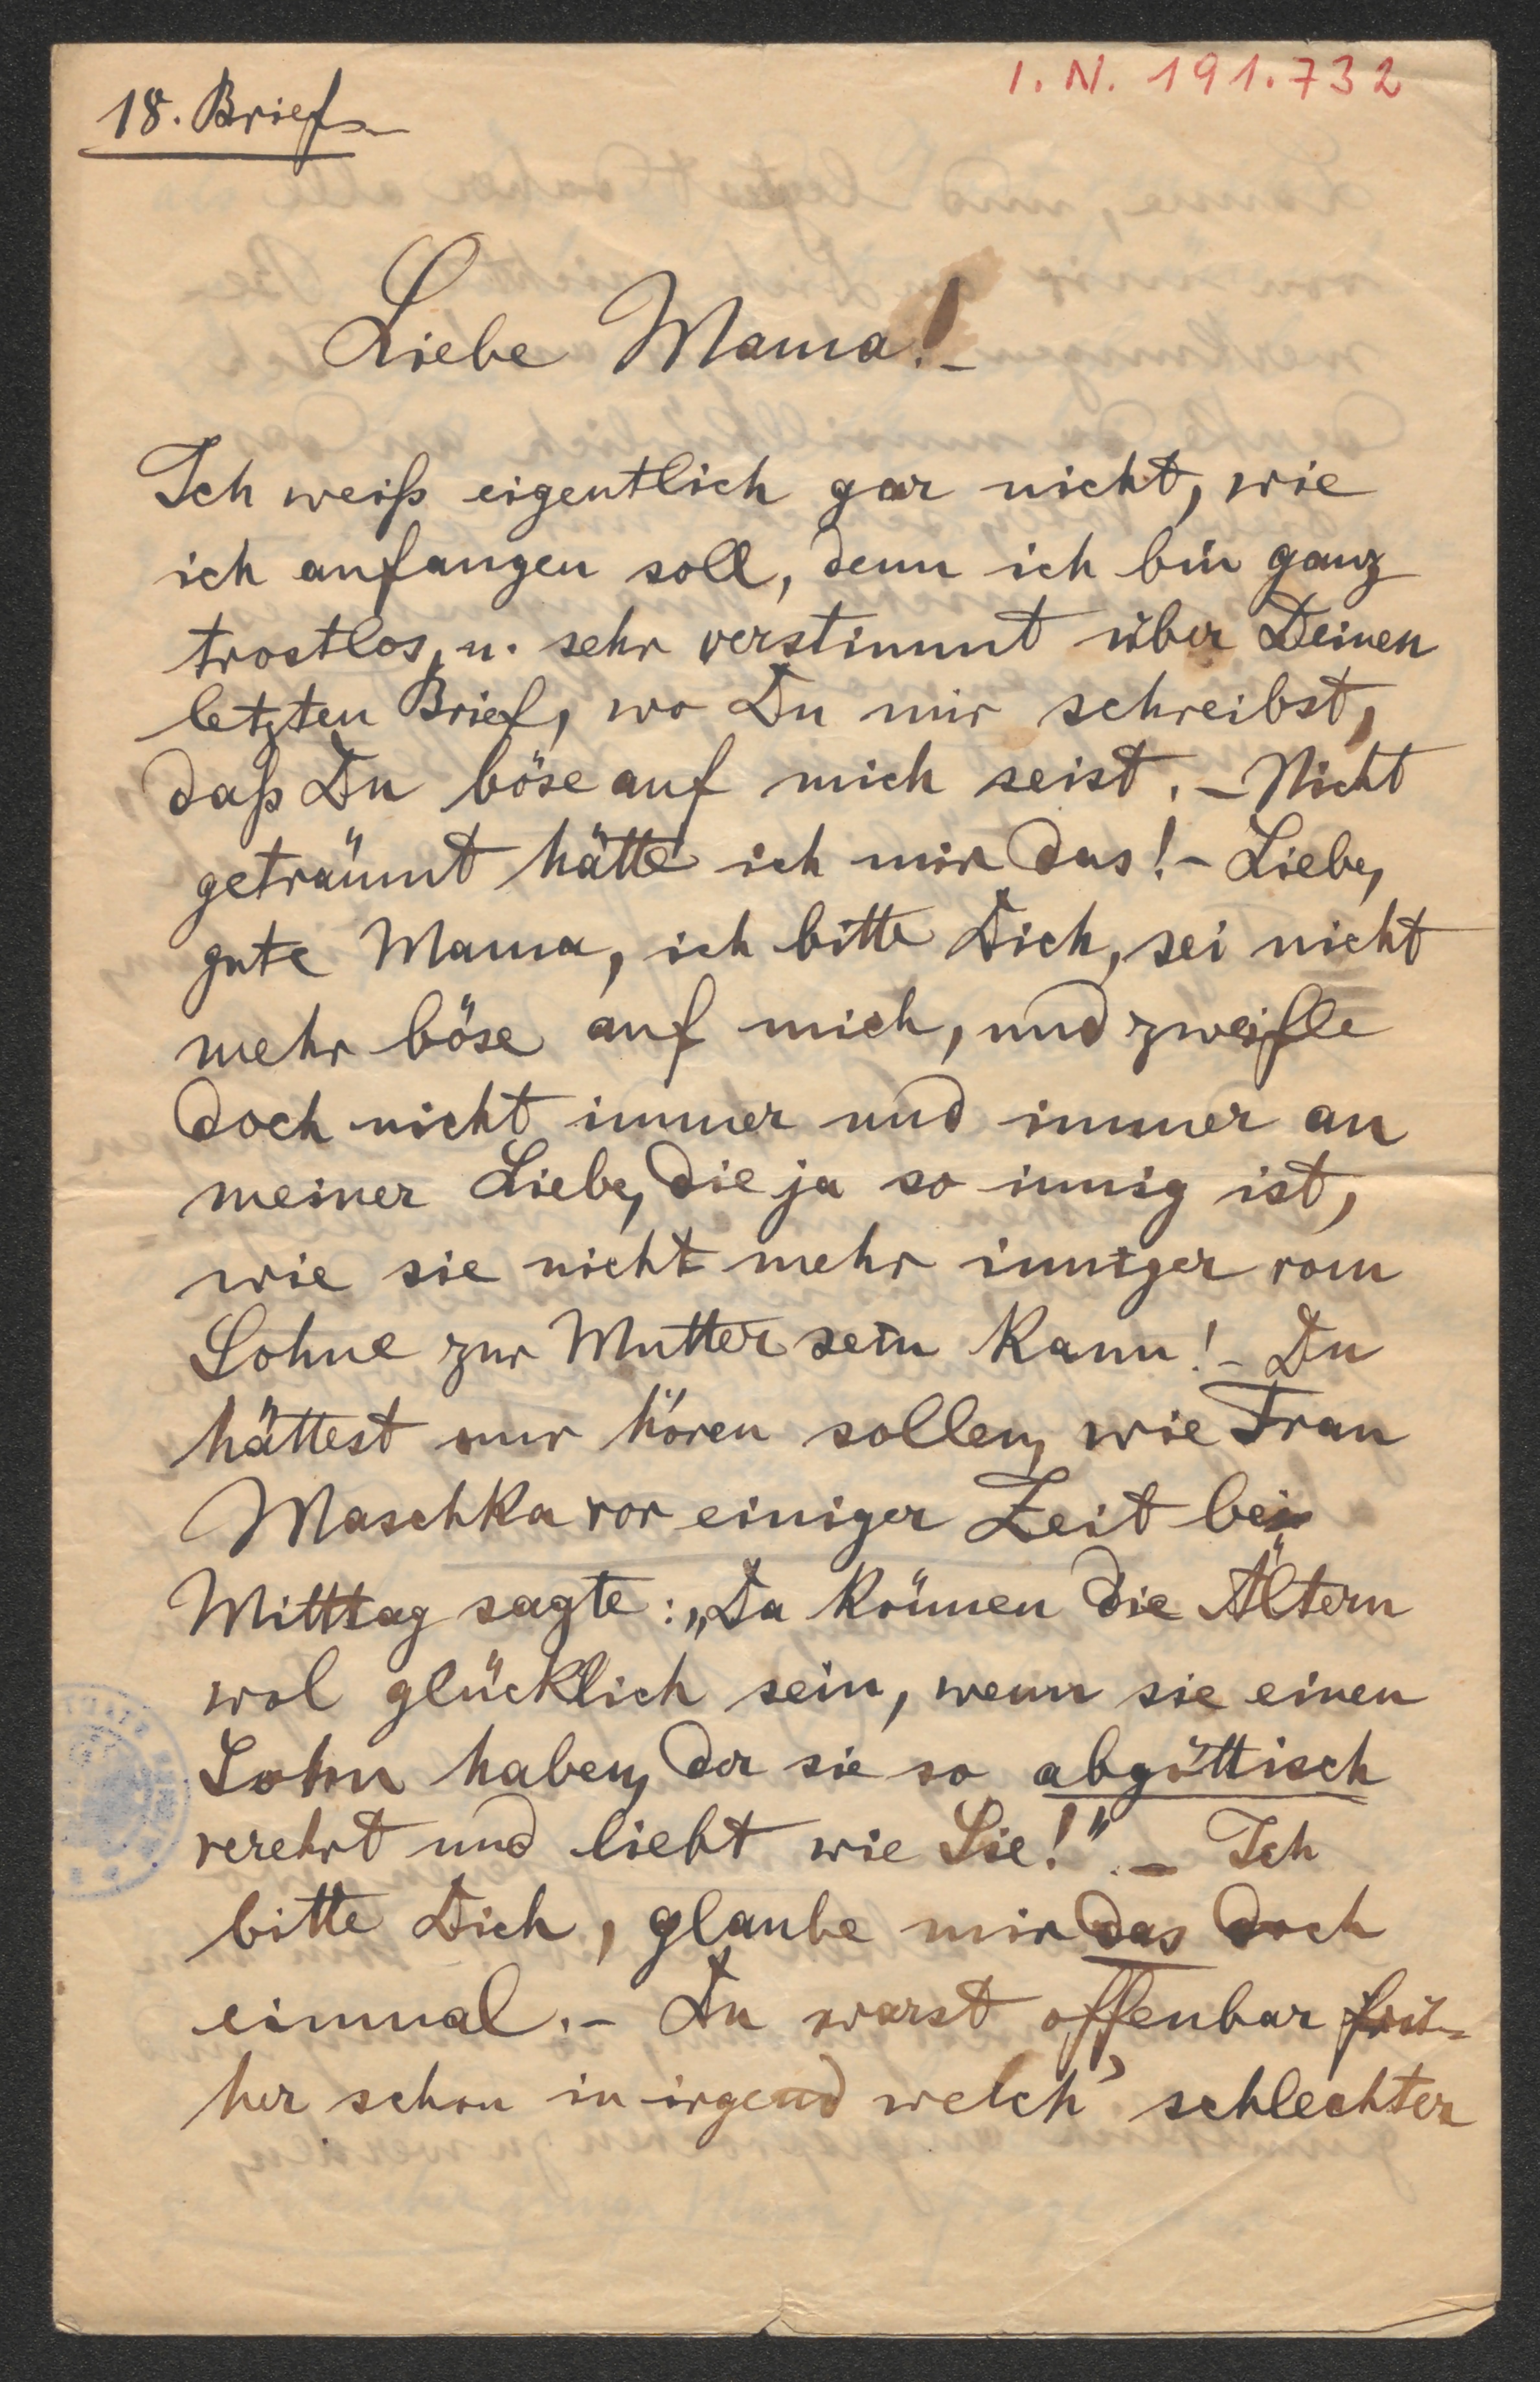 I. N. 191.732
18. Brief
Liebe Mama! –
Ich weiß eigentlich gar nicht, wie
ich anfangen soll, denn ich bin ganz
trostlos, u. sehr verstimmt über Deinen
letzten Brief, wo Du mir schreibst,
daß Du böse auf mich seist. – Nicht
geträumt hätte ich mir das! – Liebe,
gute Mama, ich bitte Dich, sei nicht
mehr böse auf mich, und zweifle
doch nicht immer und immer an
meiner Liebe, die ja so innig ist,
wie sie nicht mehr inniger vom
Sohne zur Mutter sein kann! – Du
hättest nur hören sollen, wie Frau
Maschka vor einiger Zeit bei
Mitttag sagte: „Da können die Ältern
wol glücklich sein, wenn sie einen
Sohn haben, der sie so abgöttisch
verehrt und liebt wie Sie!" – Ich
bitte Dich, glaube mir das doch
einmal. – Du warst offenbar frü-
her schon in irgend welch' schlechter